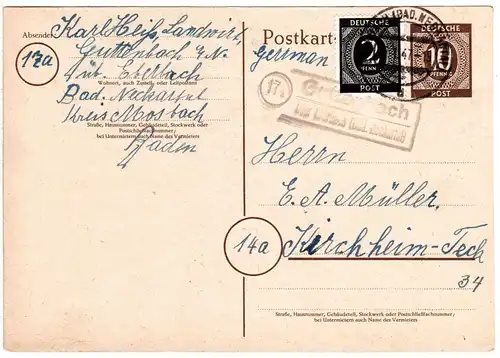 Absender:
Karl Heiß, Landwirt
Guttenbach a/N.
17a
üb. Eberbach
Wohnort, auch Zustell- oder Leitpostamt
Bad. Neckartal
Kreis Mosbach
Straße, Hausnummer, Gebäudeteil, Stockwerk oder
Postschließfachnummer;
bei Untermietern auch Name des Vermieters
Baden
Postkarte
German
DEUTSCHE
2
PFENNIG
POST
DEUTSCHE
10
PFENNIG
POST
47
17a
Herrn
E. A. Müller,
14a
Kirchheim-Teck
34
Straße, Hausnummer, Gebäudeteil, Stockwerk oder Postschließfachnummer;
bei Untermietern auch Name des Vermieters